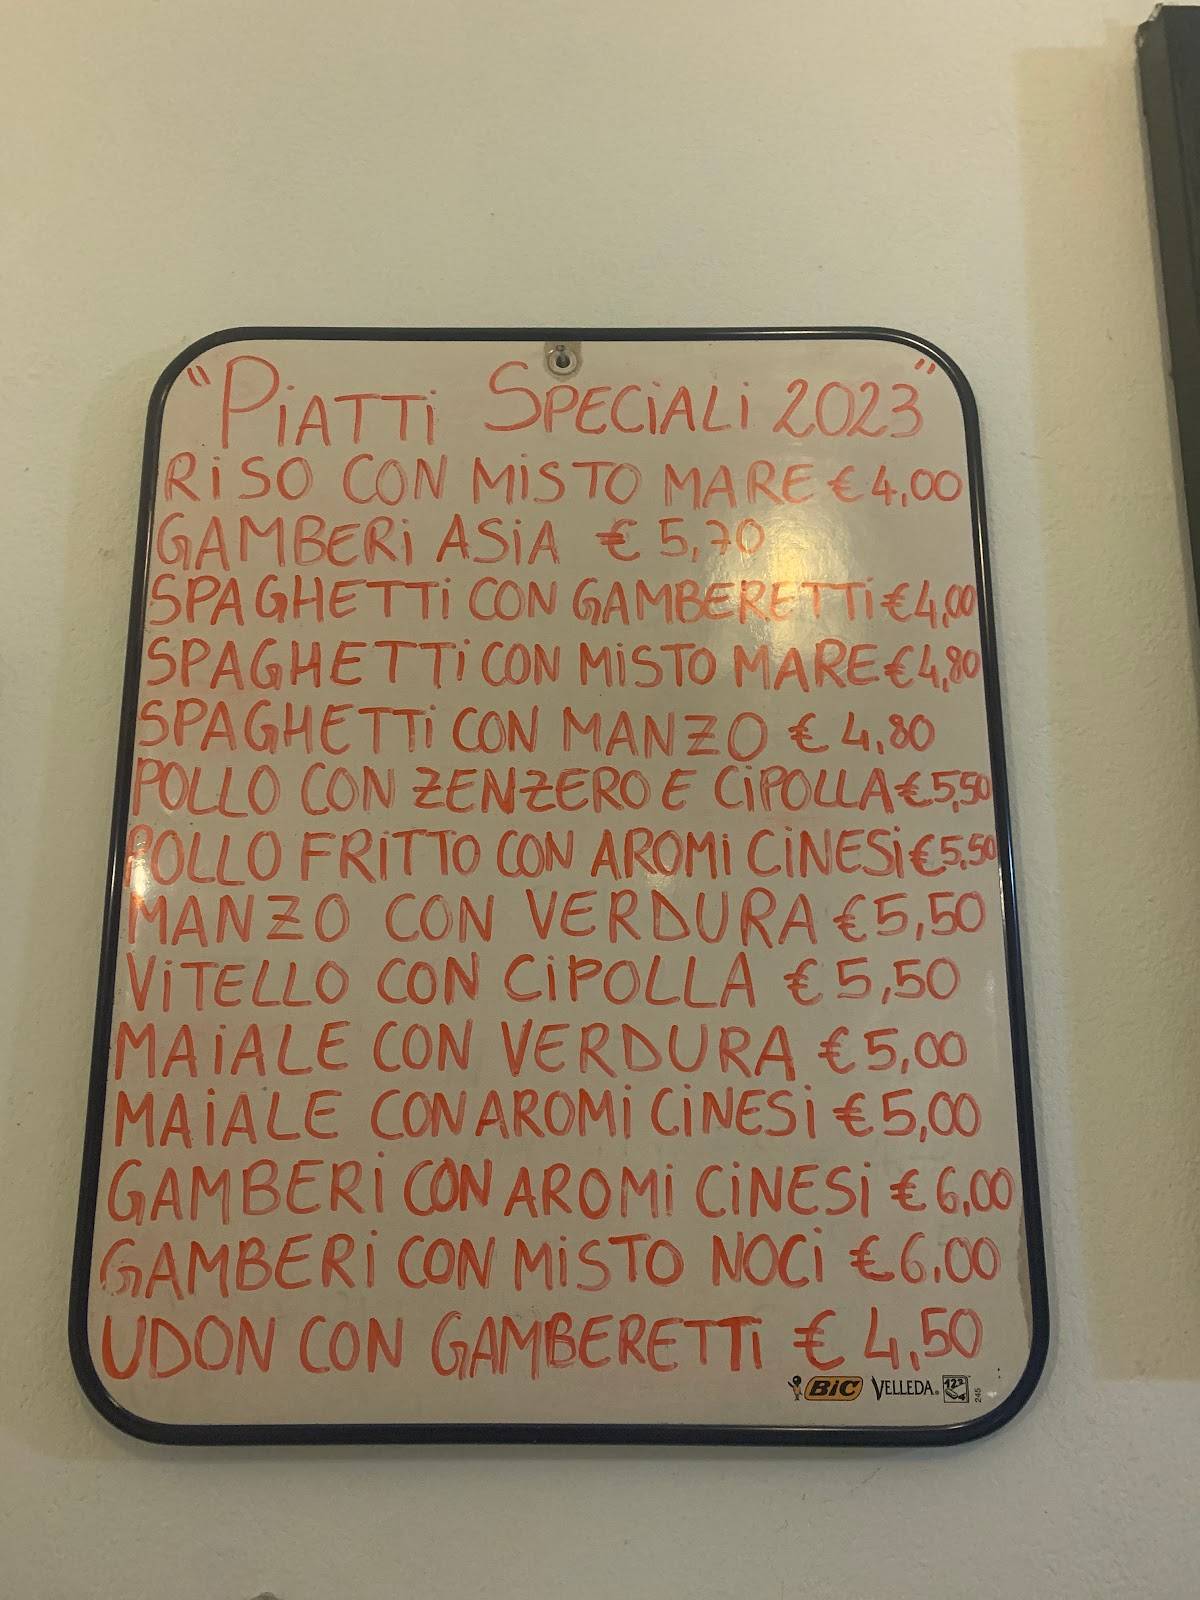 "Piatti Speciali 2023"
RiSO CON MiSTO MARE € 4,00
GAMBERi ASiA € 5,70
SPAGHETTi CON GAMBERETTi €4,00
SPAGHETTi CON MiSTO MARE €4,80
SPAGHETTi CON MANZO € 4,80
POLLO CON ZENZERO E CiPOLLA €5,50
POLLO FRiTTO CON AROMi CiNESi €5,50
MANZO CON VERDURA €5,50
ViTELLO CON CiPOLLA € 5,50
MAiALE CON VERDURA € 5,00
MAiALE CON AROMi CiNESi € 5,00
GAMBERi CON AROMi CiNESi € 6,00
GAMBERi CON MiSTO NOCi € 6,00
UDON CON GAMBERETTi € 4,50
BiC VELLEDA® 1224 245